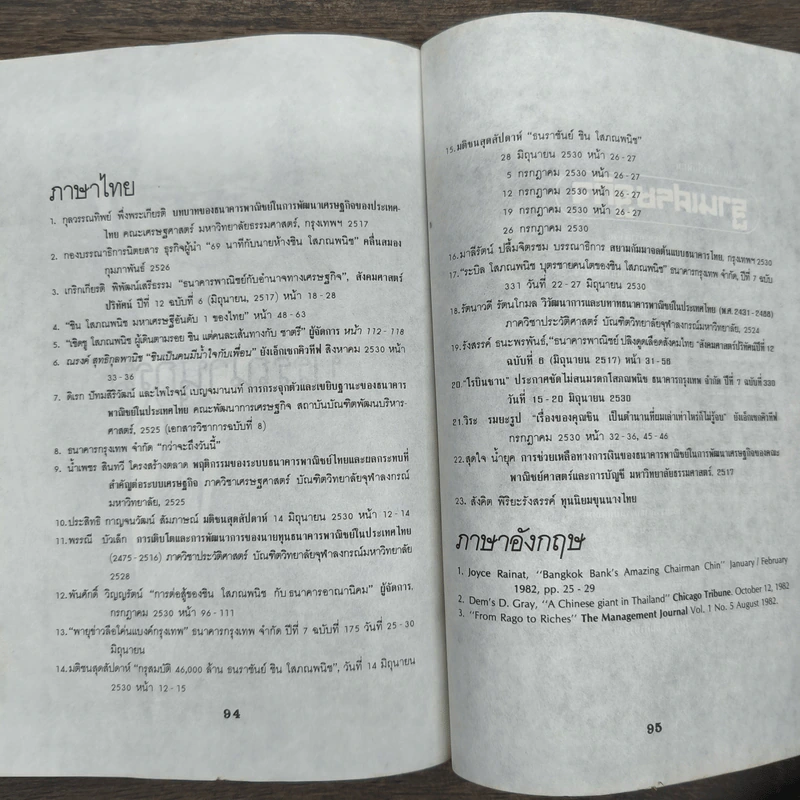 ภาษาไทย
1. กุลวรรณทิพย์ พึ่งพระเกียรติ บทบาทของธนาคารพาณิชย์ในการพัฒนาเศรษฐกิจของประเทศ-
ไทย คณะเศรษฐศาสตร์ มหาวิทยาลัยธรรมศาสตร์, กรุงเทพฯ 2517
2. กองบรรณาธิการนิตยสาร ธุรกิจผู้นำ "69 นาทีกับนายห้างชิน โสภณพนิช" คลื่นสมอง
กุมภาพันธ์ 2526
3. เกริกเกียรติ พิพัฒน์เสรีธรรม "ธนาคารพาณิชย์กับอำนาจทางเศรษฐกิจ", สังคมศาสตร์
ปริทัศน์ ปีที่ 12 ฉบับที่ 6 (มิถุนายน, 2517) หน้า 18 - 28
4. "ชิน โสภณพนิช มหาเศรษฐีอันดับ 1 ของไทย" หน้า 48 - 63
5. "เชิดชู โสภณพนิช ผู้เดินตามรอย ชิน แต่คนละเส้นทางกับ ชาตรี" ผู้จัดการ หน้า 112 - 118
6. ณรงค์ สุทธิกุลพานิช "ชินเป็นคนมีน้ำใจกับเพื่อน" ยังเอ็กเซกคิวทีฟ สิงหาคม 2530 หน้า
33 - 36
7. ดิเรก ปัทมสิริวัฒน์ และไพโรจน์ เบญจมานนท์ การกระจุกตัวและเขยิบฐานะของธนาคาร
พาณิชย์ในประเทศไทย คณะพัฒนาการเศรษฐกิจ สถาบันบัณฑิตพัฒนบริหาร-
ศาสตร์, 2525 (เอกสารวิชาการฉบับที่ 8)
8. ธนาคารกรุงเทพ จำกัด "กว่าจะถึงวันนี้"
9. น้ำเพชร สินทวี โครงสร้างตลาด พฤติกรรมของระบบธนาคารพาณิชย์ไทยและผลกระทบที่
สำคัญต่อระบบเศรษฐกิจ ภาควิชาเศรษฐศาสตร์ บัณฑิตวิทยาลัยจุฬาลงกรณ์
มหาวิทยาลัย, 2525
10. ประสิทธิ์ กาญจนวัฒน์ สัมภาษณ์ มติชนสุดสัปดาห์ 14 มิถุนายน 2530 หน้า 12 - 14
11. พรรณี บัวเล็ก การเติบโตและการพัฒนาการของนายทุนธนาคารพาณิชย์ในประเทศไทย
(2475 - 2516) ภาควิชาประวัติศาสตร์ บัณฑิตวิทยาลัยจุฬาลงกรณ์มหาวิทยาลัย
2528
12. พันศักดิ์ วิญญรัตน์ "การต่อสู้ของชิน โสภณพนิช กับธนาคารอาณานิคม" ผู้จัดการ,
กรกฎาคม 2530 หน้า 96 - 111
13. "พายุข่าวลือโค่นแบงค์กรุงเทพ" ธนาคารกรุงเทพ จำกัด ปีที่ 7 ฉบับที่ 175 วันที่ 25 - 30
มิถุนายน
14. มติชนสุดสัปดาห์ "กรุสมบัติ 46,000 ล้าน ธนราชันย์ ชิน โสภณพนิช", วันที่ 14 มิถุนายน
2530 หน้า 12 - 15
94
15. มติชนสุดสัปดาห์ "ธนราชันย์ ชิน โสภณพนิช"
28 มิถุนายน 2530 หน้า 26 - 27
5 กรกฎาคม 2530 หน้า 26 - 27
12 กรกฎาคม 2530 หน้า 26 - 27
19 กรกฎาคม 2530 หน้า 26 - 27
26 กรกฎาคม 2530
16. มาลีรัตน์ ปลื้มจิตรชม บรรณาธิการ สยามกัมมาจลต้นแบบธนาคารไทย, กรุงเทพฯ 2530
17. "ระบิล โสภณพนิช บุตรชายคนโตของชิน โสภณพนิช" ธนาคารกรุงเทพ จำกัด, ปีที่ 7 ฉบับ
331 วันที่ 22 - 27 มิถุนายน 2530
18. รัตนาวดี รัตนโกมล วิวัฒนาการและบทบาทธนาคารพาณิชย์ในประเทศไทย (พ.ศ. 2431 - 2488)
ภาควิชาประวัติศาสตร์ บัณฑิตวิทยาลัยจุฬาลงกรณ์มหาวิทยาลัย, 2524
19. รังสรรค์ ธนะพรพันธุ์, "ธนาคารพาณิชย์ ปลิงดูดเลือดสังคมไทย" สังคมศาสตร์ปริทัศน์ปีที่ 12
ฉบับที่ 6 (มิถุนายน 2517) หน้า 31 - 58
20. "โรบินขาน" ประกาศขัดไม่สนมรดกโสภณพนิช ธนาคารกรุงเทพ จำกัด ปีที่ 7 ฉบับที่ 330
วันที่ 15 - 20 มิถุนายน 2530
21. วีระ รมยะรูป "เรื่องของคุณชิน เป็นตำนานที่ผมเล่าเท่าไหร่ก็ไม่รู้จบ" ยังเอ็กเซกคิวทีฟ
กรกฎาคม 2530 หน้า 32 - 36, 45 - 46
22. สุดใจ น้ำผุด การช่วยเหลือทางการเงินของธนาคารพาณิชย์ในการพัฒนาเศรษฐกิจของคณะ
พาณิชย์ศาสตร์และการบัญชี มหาวิทยาลัยธรรมศาสตร์, 2517
23. สังศิต พิริยะรังสรรค์ ทุนนิยมขุนนางไทย
ภาษาอังกฤษ
1. Joyce Rainat, "Bangkok Bank's Amazing Chairman Chin" January / February
1982, pp. 25 - 29
2. Dem's D. Gray, "A Chinese giant in Thailand" Chicago Tribune. October 12, 1982
3. "From Rago to Riches" The Management Journal Vol. 1 No. 5 August 1982.
95